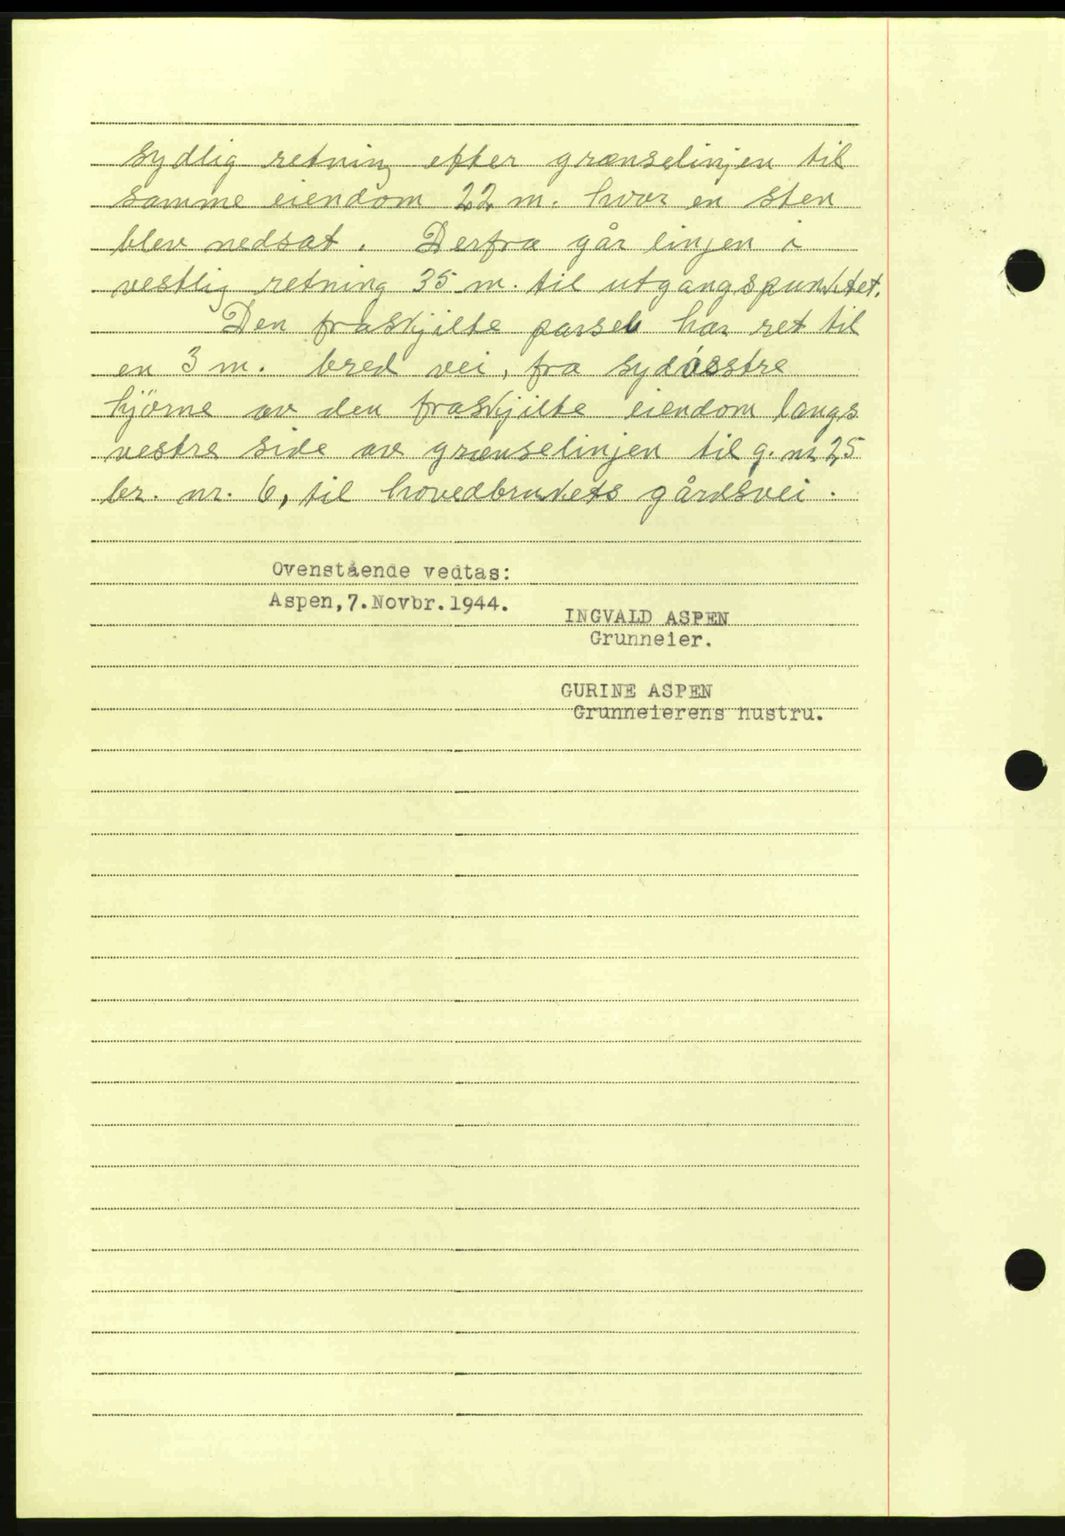 sydlig retning efter grænselinjen til
samme eiendom 22 m. hvor en sten
blev nedsat. Derfra går linjen i
vestlig retning 35 m. til utgangspunktet.
Den fraskjilte parsel har ret til
en 3 m. bred vei, fra sydöstre
hjörne av den fraskjilte eiendom langs
vestre side av grænselinjen til g. nr 25
br. nr. 6, til hovedbrukets gårdsvei.
Ovenstående vedtas:
Aspen, 7. Novbr. 1944.
INGVALD ASPEN
Grunneier.
GURINE ASPEN
Grunneierens hustru.